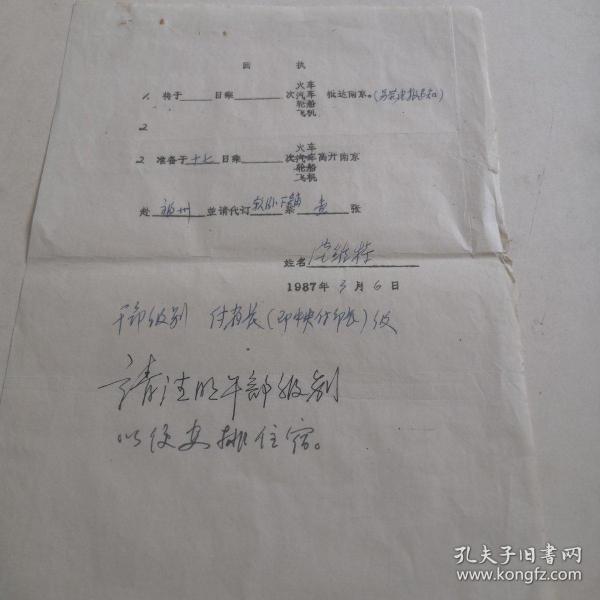 回 执
火车
1. 将于____日乘____次汽车 抵达南京。(另发电报告知)
轮船
飞机
2
火车
2. 准备于十七日乘____次汽车离开南京
轮船
飞机
赴 福州 並请代订软卧下铺票 壹 张
姓名 范维特
1987年 3月 6日
干部级别 付省长(即中央付部长)级
请注明干部级别
以便安排住宿。
孔夫子旧书网
www.kongfz.com